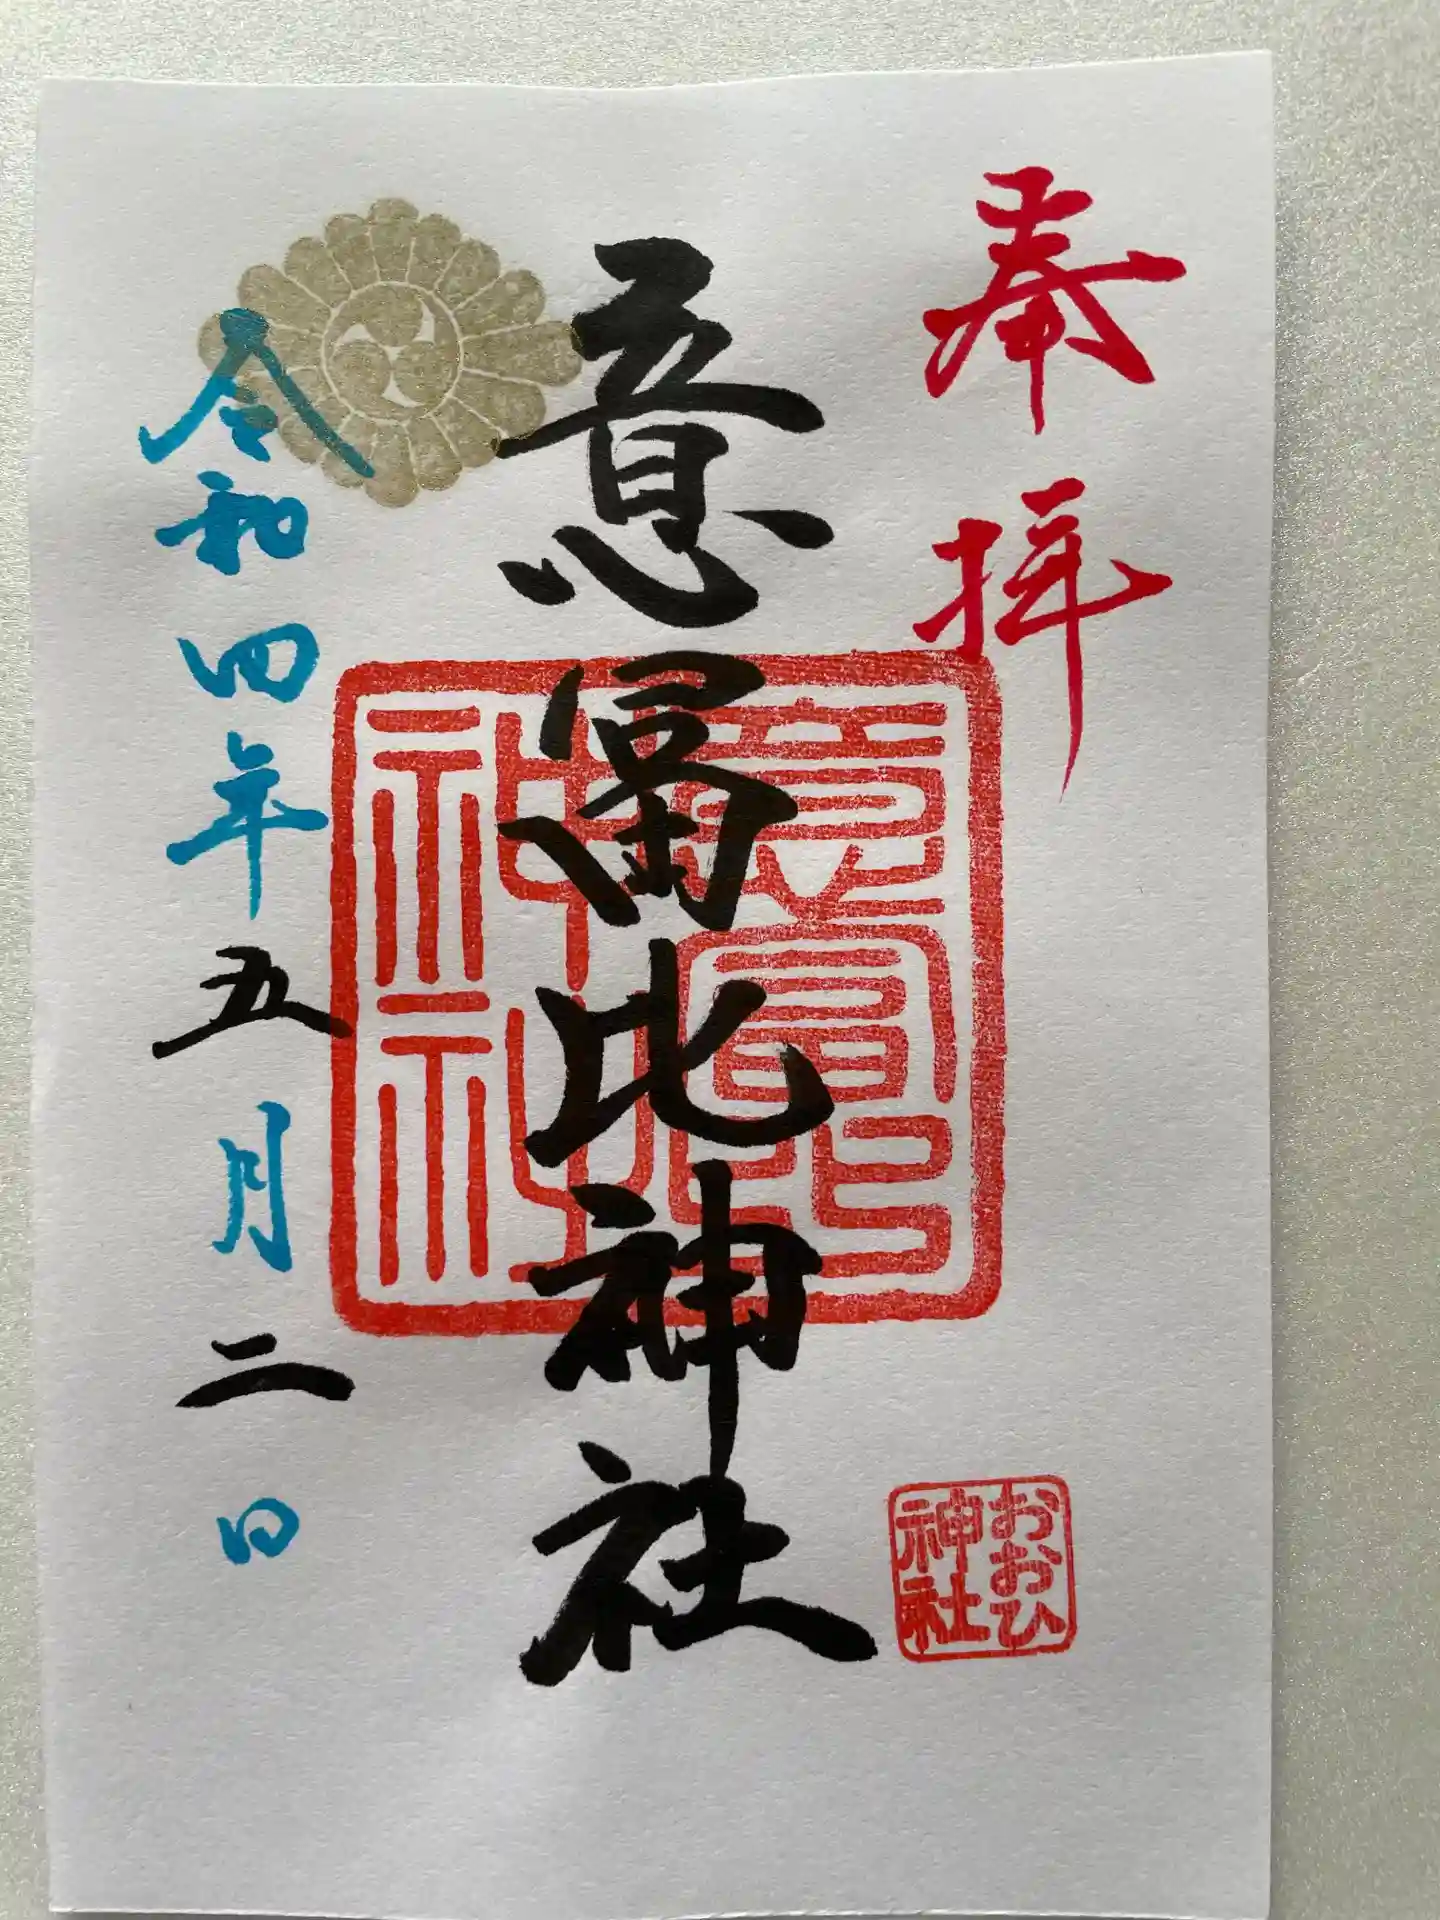 奉拝
意冨比神社
意富比神社
おおひ神社
令和四年五月二日